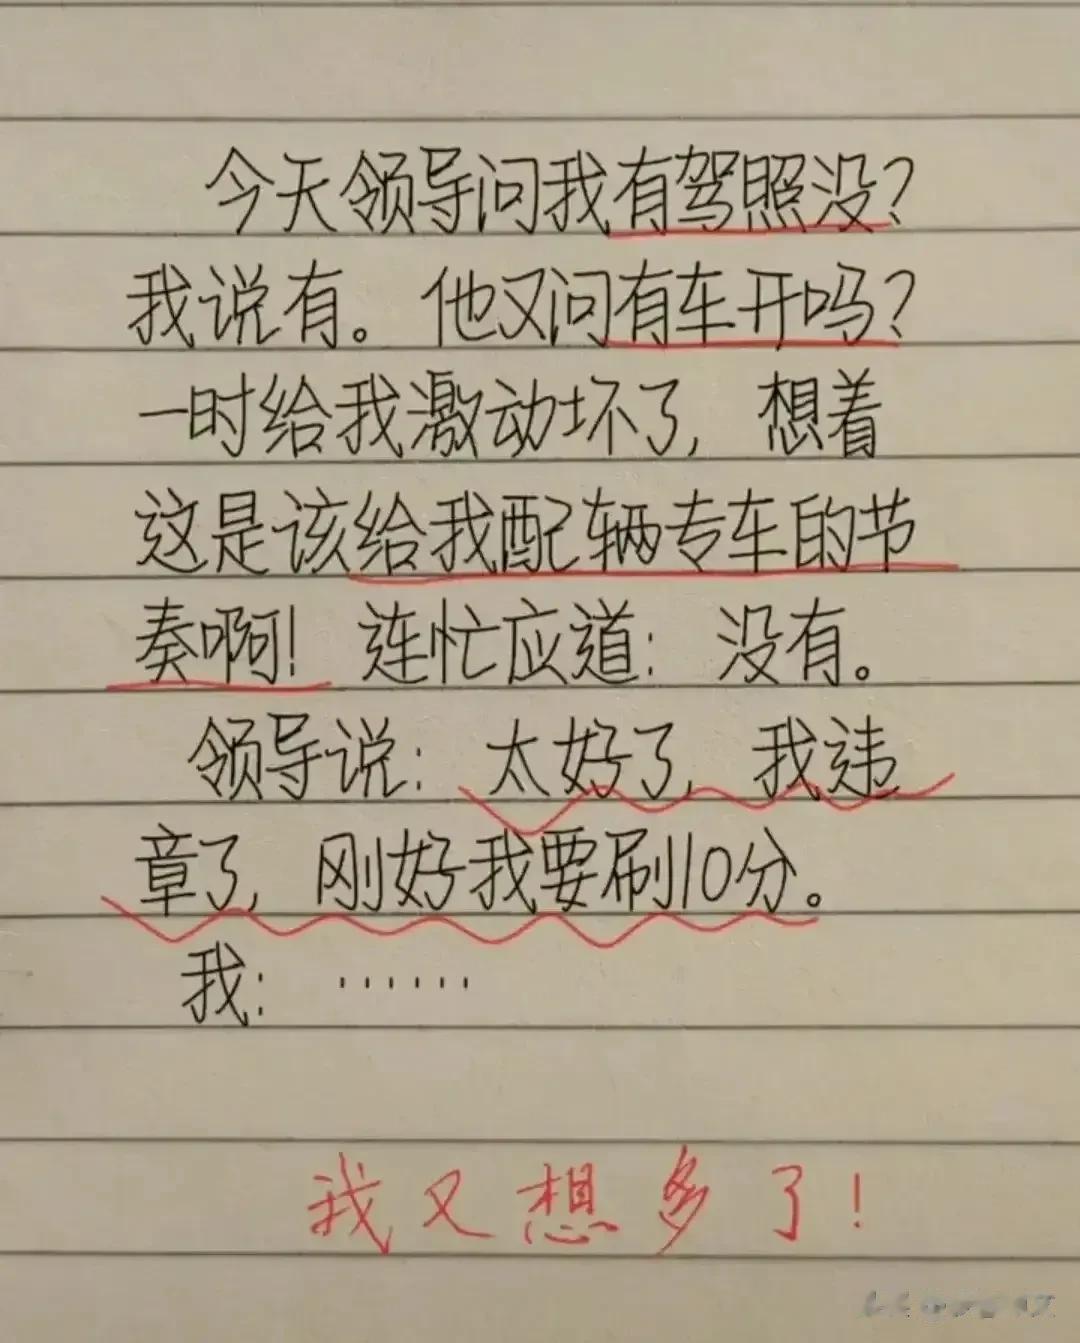 今天领导问我有驾照没?
我说有。他又问有车开吗?
一时给我激动坏了,想着
这是该给我配辆专车的节
奏啊!连忙应道:没有。
领导说:太好了,我违
章了,刚好我要刷10分。
我:……
我又想多了!